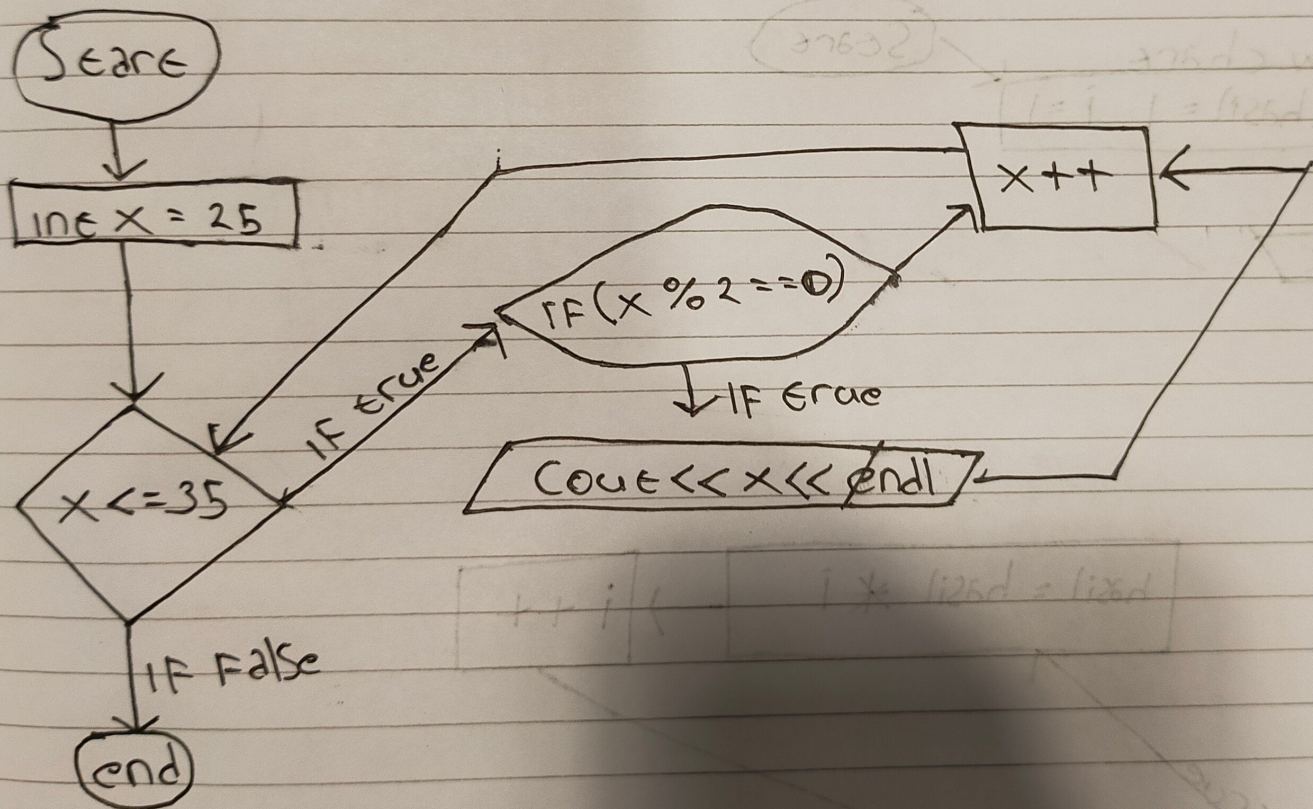 Start
int x = 25
x <= 35
if true
if (x % 2 == 0)
x++
if true
cout << x << endl
if False
end